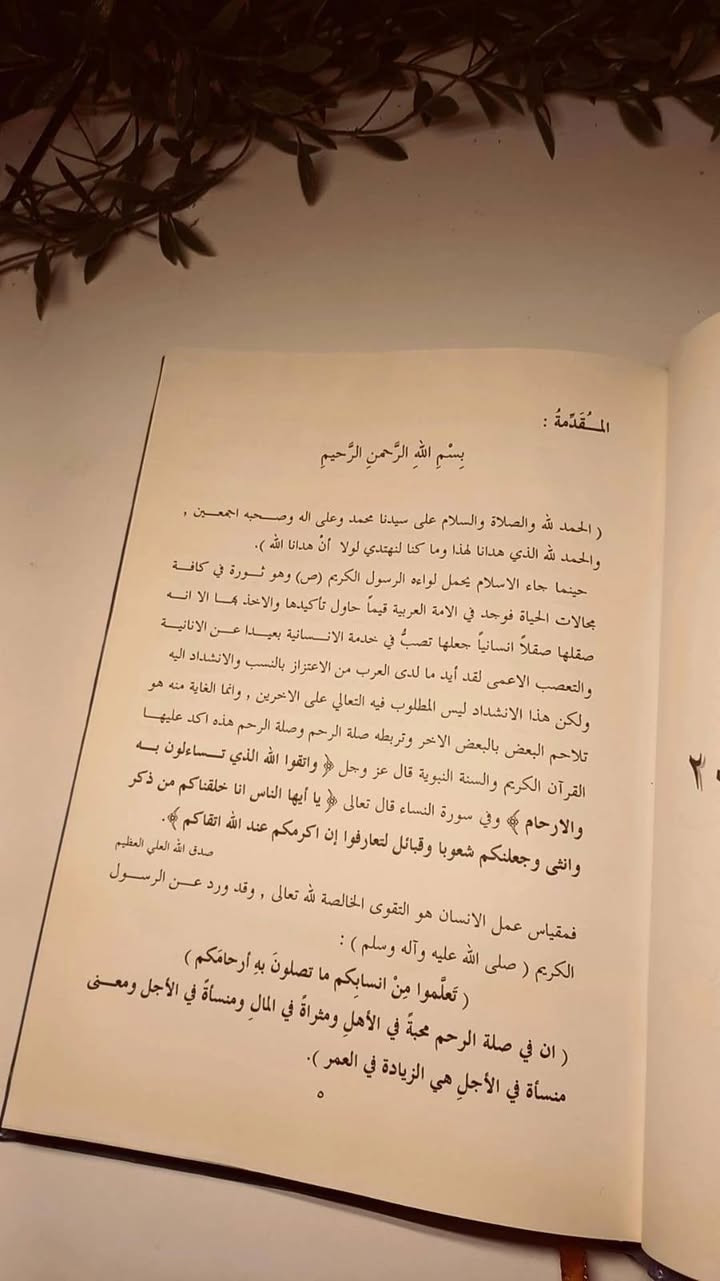 المـُقَدِّمةُ :
بِسْمِ اللهِ الرَّحمنِ الرَّحيمِ
( الحمد لله والصلاة والسلام على سيدنا محمد وعلى اله وصـحبه اجمعـين ,
والحمد لله الذي هدانا لهذا وما كنا لنهتدي لولا أنْ هدانا الله ).
حينما جاء الاسلام يحمل لواءه الرسول الكريم (ص) وهو ثـورة في كافـة
مجالات الحياة فوجد في الامة العربية قيماً حاول تأكيدها والاخذ بهـا الا انـه
صقلها صقلاً انسانياً جعلها تصبُّ في خدمة الانـسانية بعيـدا عـن الانانيـة
والتعصب الاعمى لقد أيد ما لدى العرب من الاعتزاز بالنسب والانشداد اليه
ولكن هذا الانشداد ليس المطلوب فيه التعالي على الاخرين , وانما الغاية منه هو
تلاحم البعض بالبعض الاخر وتربطه صلة الرحم وصلة الرحم هذه اكد عليهـا
القرآن الكريم والسنة النبوية قال عز وجل ﴿ واتقوا الله الذي تـساءلون بـه
والارحام ﴾ وفي سورة النساء قال تعالى ﴿ يا أيها الناس انا خلقناكم من ذكر
وانثى وجعلنكم شعوبا وقبائل لتعارفوا إن اكرمكم عند الله اتقاكم ﴾.
صدق الله العلي العظيم
فمقياس عمل الانسان هو التقوى الخالصة لله تعالى , وقد ورد عـن الرسـول
الكريم ( صلى الله عليه وآله وسلم ) :
( تَعلَّموا مِنْ انسابِكم ما تصلونَ بهِ أرحامَكم )
( ان في صلة الرحم محبةً في الأهلِ ومثراةً في المالِ ومنسأةً في الأجل ومعـنى
منسأة في الأجلِ هي الزيادة في العمر ).
٥